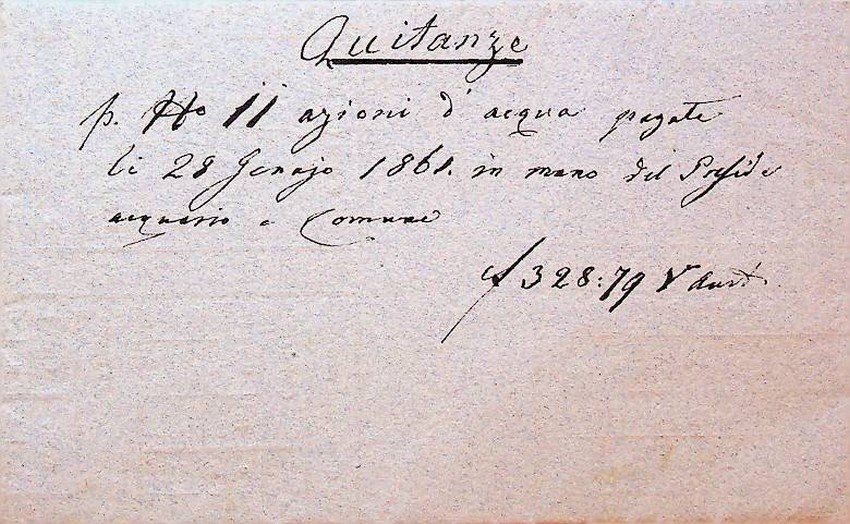 Quitanze
p. No 11 azioni d' acqua pagate
li 28 Genajo 1861. in mano del Preside
acquario e Comune
f 328:79 V Aust.